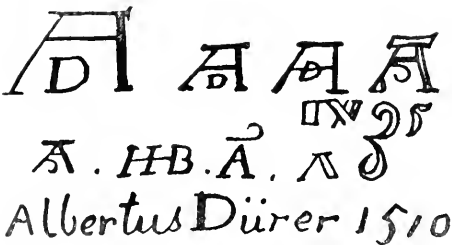 AD AD AD A
A . HB . A . A
Albertus Dürer 1510